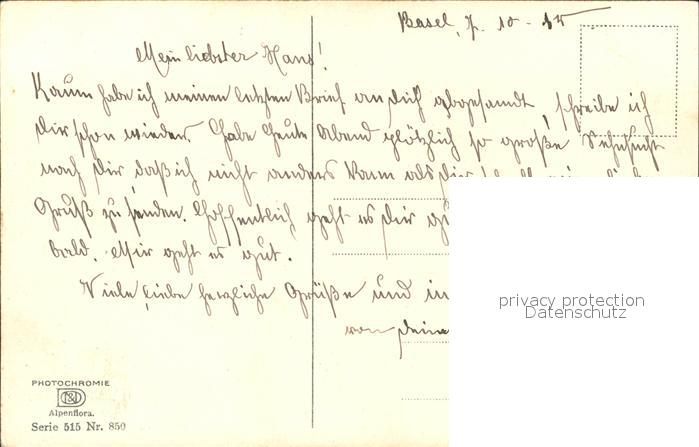 Basel, 7. 10. 15
Mein liebster Hans!
Kaum habe ich meinen letzten Brief an dich abgesandt, schreibe ich
dir schon wieder. Habe heute Abend plötzlich so große Sehnsucht
nach dir, daß ich nicht anders kann als dir
Gruß zu senden. Hoffentlich geht es dir
bald. Mir geht es gut.
Viele, liebe herzliche Grüße und
von deine
privacy protection
Datenschutz
PHOTOCHROMIE
Alpenflora.
Serie 515 Nr. 850